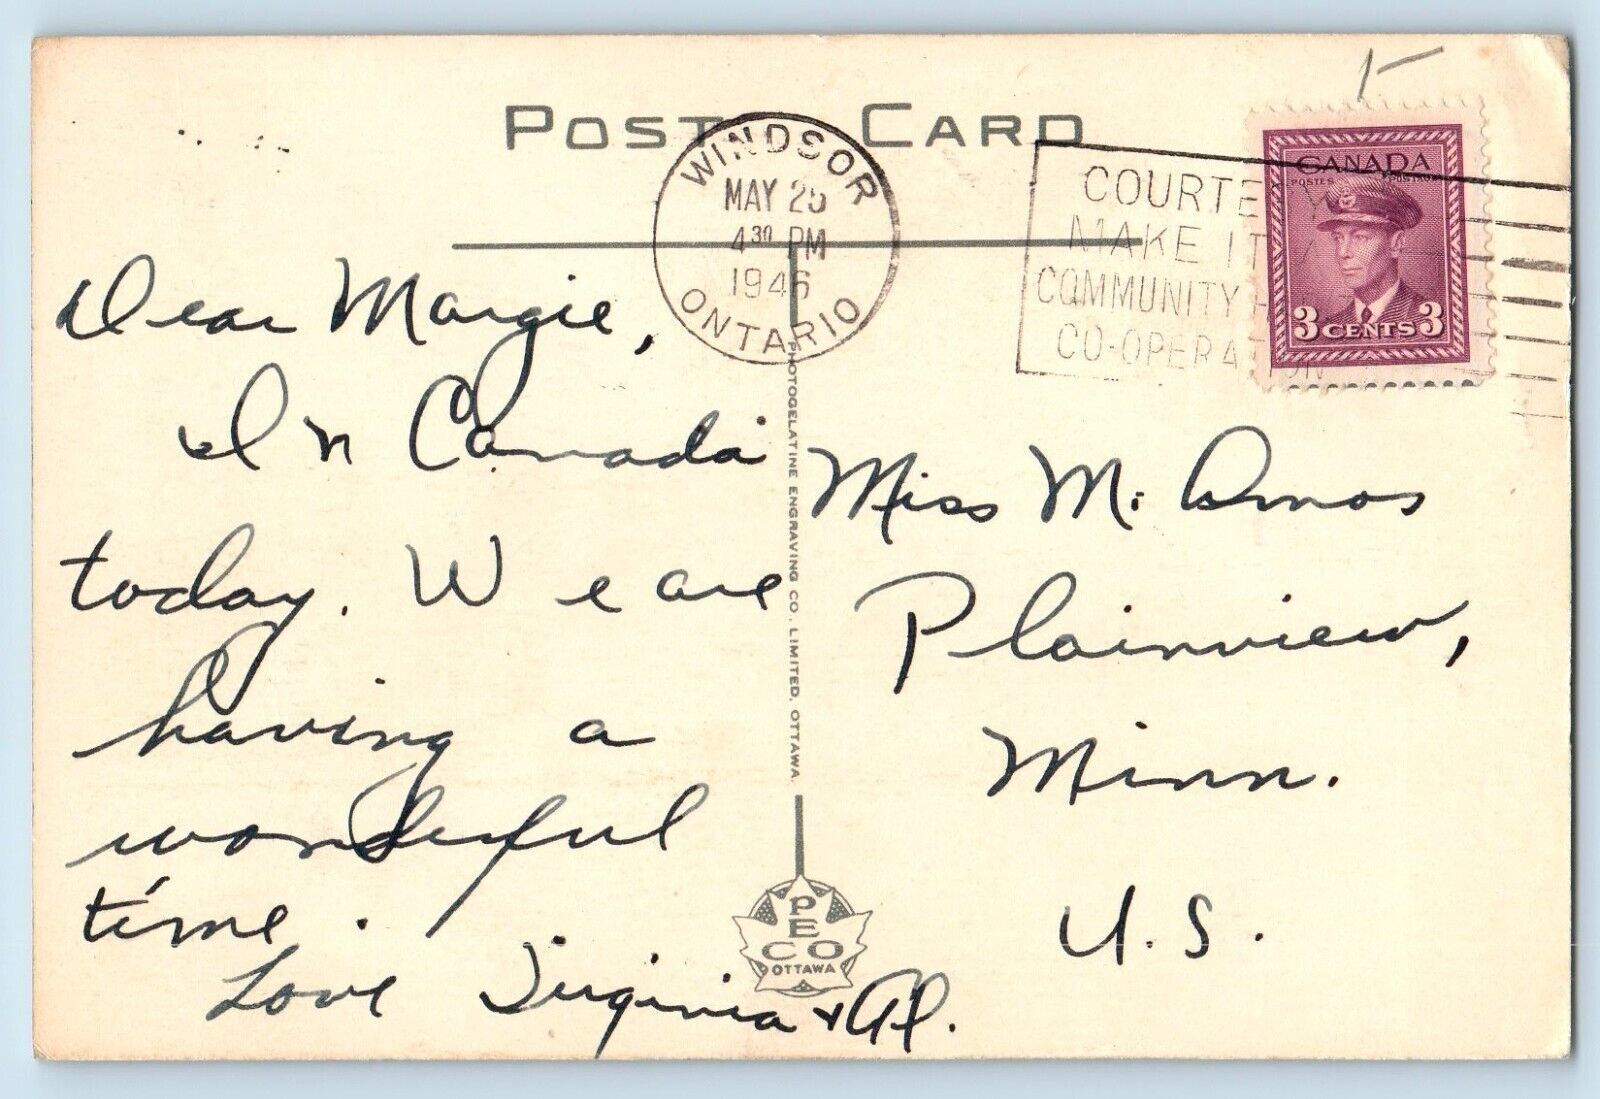 POST CARD
WINDSOR
MAY 25
4 30 PM
1946
ONTARIO
COURTE Y
MAKE IT A
COMMUNITY H
CO-OPERATION
CANADA
POSTES POSTAGE
3 CENTS 3
Dear Margie,
In Canada
today. We are
having a
wonderful
time.
Love Virginia + Al.
PHOTOGELATINE ENGRAVING CO. LIMITED, OTTAWA.
PECO
OTTAWA
Miss M. Amos
Plainview,
Minn.
U.S.